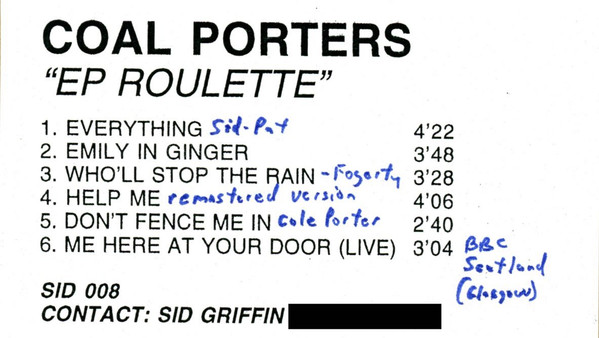 COAL PORTERS
“EP ROULETTE”
1. EVERYTHING Sid-Pat 4’22
2. EMILY IN GINGER 3’48
3. WHO’LL STOP THE RAIN -Fogerty 3’28
4. HELP ME remastered version 4’06
5. DON’T FENCE ME IN Cole Porter 2’40
6. ME HERE AT YOUR DOOR (LIVE) 3’04 BBC
Scotland
(Glasgow)
SID 008
CONTACT: SID GRIFFIN